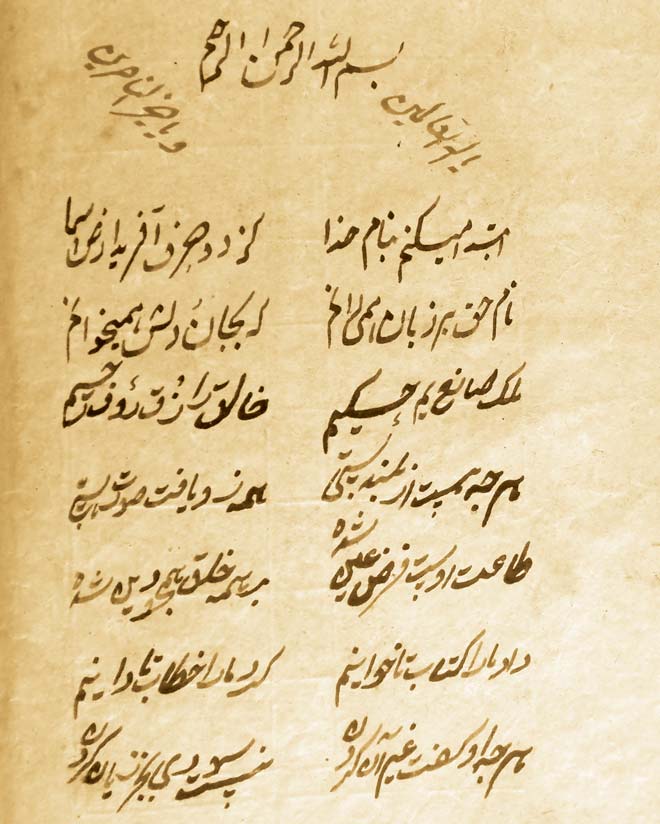 بسم الله الرحمن الرحیم
یا اله العالمین
و یا خیر الناصرین
ابتدا میکنم بنام خدا کز دو حرف آفرید ارض و سما
نام حق بر زبان همی رانم که بجان و دلش همیخوانم
ملک صانع قدیم و حکیم خالق و رازق رؤف و رحیم
هر چه هست از بلند و پستی همه زو یافت صورت هستی
طاعت اوست فرض عین شده بر همه خلق همچو دین شده
داد ما را کتاب تا خوانیم کرد ما را خطاب تا دانیم
هر چه او گفت غیر آن کرده نیست سودی بجز زیان کرده